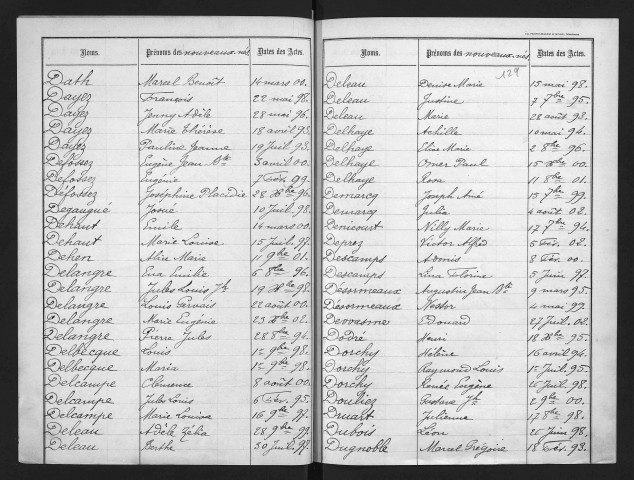 Noms. Prénoms des nouveaux-nés Dates des Actes.
Dath Marcel Benoît 14 mars 00.
Dayez François 22 mai 98.
Dayez Jenny Adèle 28 mai 96.
Dayez Marie Thérèse 18 avril 93.
Dayez Pauline Jeanne 19 Juil. 93.
Defossez Eugène Jean Bte 3 avril 00.
Defossez Eugénie 7 Fév. 99.
Défossez Joséphine Placidie 28 Xbre 96.
Degauqué Josué 10 Juil. 98.
Dehaut Emile 14 mars 00.
Dehaut Marie Louise 15 Juil. 98.
Dehen Alice Marie 11 9bre 01.
Delangre Eva Emilie 6 8bre 96.
Delangre Jules Louis Jh 19 Xbre 98.
Delangre Louis Gervais 22 août 00.
Delangre Marie Eugénie 23 Xbre 02.
Delangre Pierre Jules 28 8bre 94.
Delbecque Louis 1r 9bre 98.
Delbecque Maria 1r 9bre 98.
Delcampe Clémence 8 août 00.
Delcampe Jules Louis 6 Fév. 95.
Delcampe Marie Louise 16 9bre 97.
Deleau Adèle Zélia 28 9bre 99.
Deleau Berthe 30 Juil. 97.
Noms. Prénoms des nouveaux-nés Dates des Actes.
Deleau Denise Marie 15 mai 98.
Deleau Justine 7 7bre 95.
Deleau Marie 28 août 93.
Delhaye Achille 10 mai 94.
Delhaye Elise Marie 2 8bre 96.
Delhaye Omer Paul 15 Xbre 00.
Delhaye Rosa 11 8bre 01.
Demarcq Joseph Aimé 15 7bre 99.
Demarcq Julia 4 août 02.
Denicourt Nelly Marie 17 7bre 94.
Deprez Victor Alfred 5 Fév. 02.
Descamps Armis 8 Fév. 00.
Descamps Lina 5 Juin 97.
Désormeaux Augustin Jean Bte 9 mars 95.
Désormeaux Nestor 4 mai 99.
Devossme Edouard 27 Juil. 02.
Dodré Henri 18 Xbre 95.
Dorchy Hélène 16 avril 94.
Dorchy Raymond Louis 1r Juil. 95.
Dorchy Renée Eugène 25 Juil. 98.
Douliez Gustave Jh 2 9bre 00.
Druart Julienne 17 8bre 98.
Dubois Léon 25 Juin 98.
Dugnoble Marcel Grégoire 18 Fév. 93.